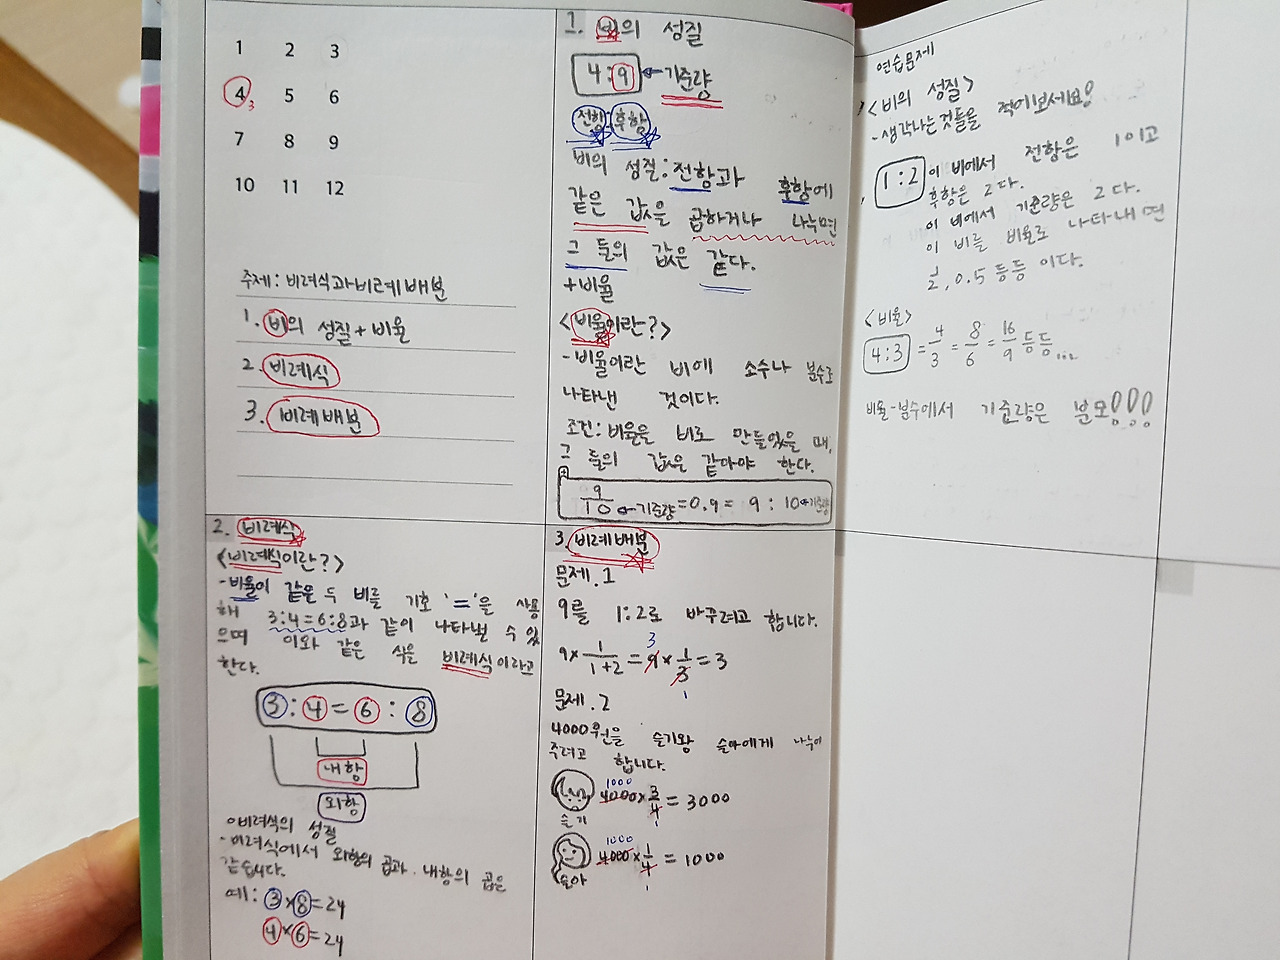 1 2 3
4 3 5 6
7 8 9
10 11 12
주제: 비례식과 비례배분
1. 비의 성질 + 비율
2. 비례식
3. 비례배분
1. 비의 성질
4:9 ← 기준량
전항:후항
비의 성질: 전항과 후항에
같은 값을 곱하거나 나누면
그 둘의 값은 같다.
+비율
<비율이란?>
-비율이란 비에 소수나 분수로
나타낸 것이다.
조건: 비율을 비로 만들었을 때,
그 둘의 값은 같아야 한다.
9/10 ←기준량 = 0.9 = 9 : 10 ←기준량
2. 비례식
<비례식이란?>
-비율이 같은 두 비를 기호 '='을 사용
해 3:4=6:8과 같이 나타낼 수 있
으며 이와 같은 식을 비례식이라고
한다.
3:4=6:8
내항
외항
○비례식의 성질
-비례식에서 외항의 곱과 내항의 곱은
같습니다.
예: 3×8=24
4×6=24
3. 비례배분
문제.1
9를 1:2로 바꾸려고 합니다.
3
9×1/1+2=9×1/3=3
1
문제.2
4000원을 슬기와 슬아에게 나누어
주려고 합니다.
1000
4000×3/4=3000
1
슬기
1000
4000×1/4=1000
1
슬아
연습문제
<비의 성질>
-생각나는것들을 적어보세요!
1:2 이 비에서 전항은 1이고
후항은 2다.
이 비에서 기준량은 2다.
이 비를 비율로 나타내면
1/2, 0.5 등등 이다.
<비율>
4:3 = 4/3 = 8/6 = 16/9 등등...
비율-분수에서 기준량은 분모!!!